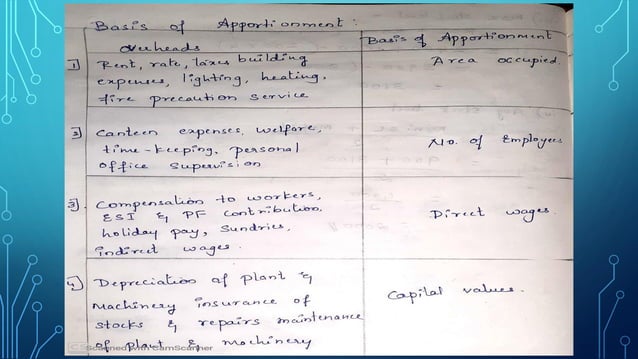 Basis of Apportionment :
Overheads
Basis of Apportionment
1) Rent, rate, taxes building
expenses, lighting, heating,
fire precaution service
Area occupied
3) Canteen expenses, welfare,
time-keeping, personal
office supervision
No. of Employees
3). Compensation to workers,
ESI & PF contribution,
holiday pay, Sundries,
indirect wages.
Direct wages.
4) Depreciation of plant &
Machinery insurance of
stocks & repairs maintenance
of plant & Machinery
Capital values.
Scanned with CamScanner